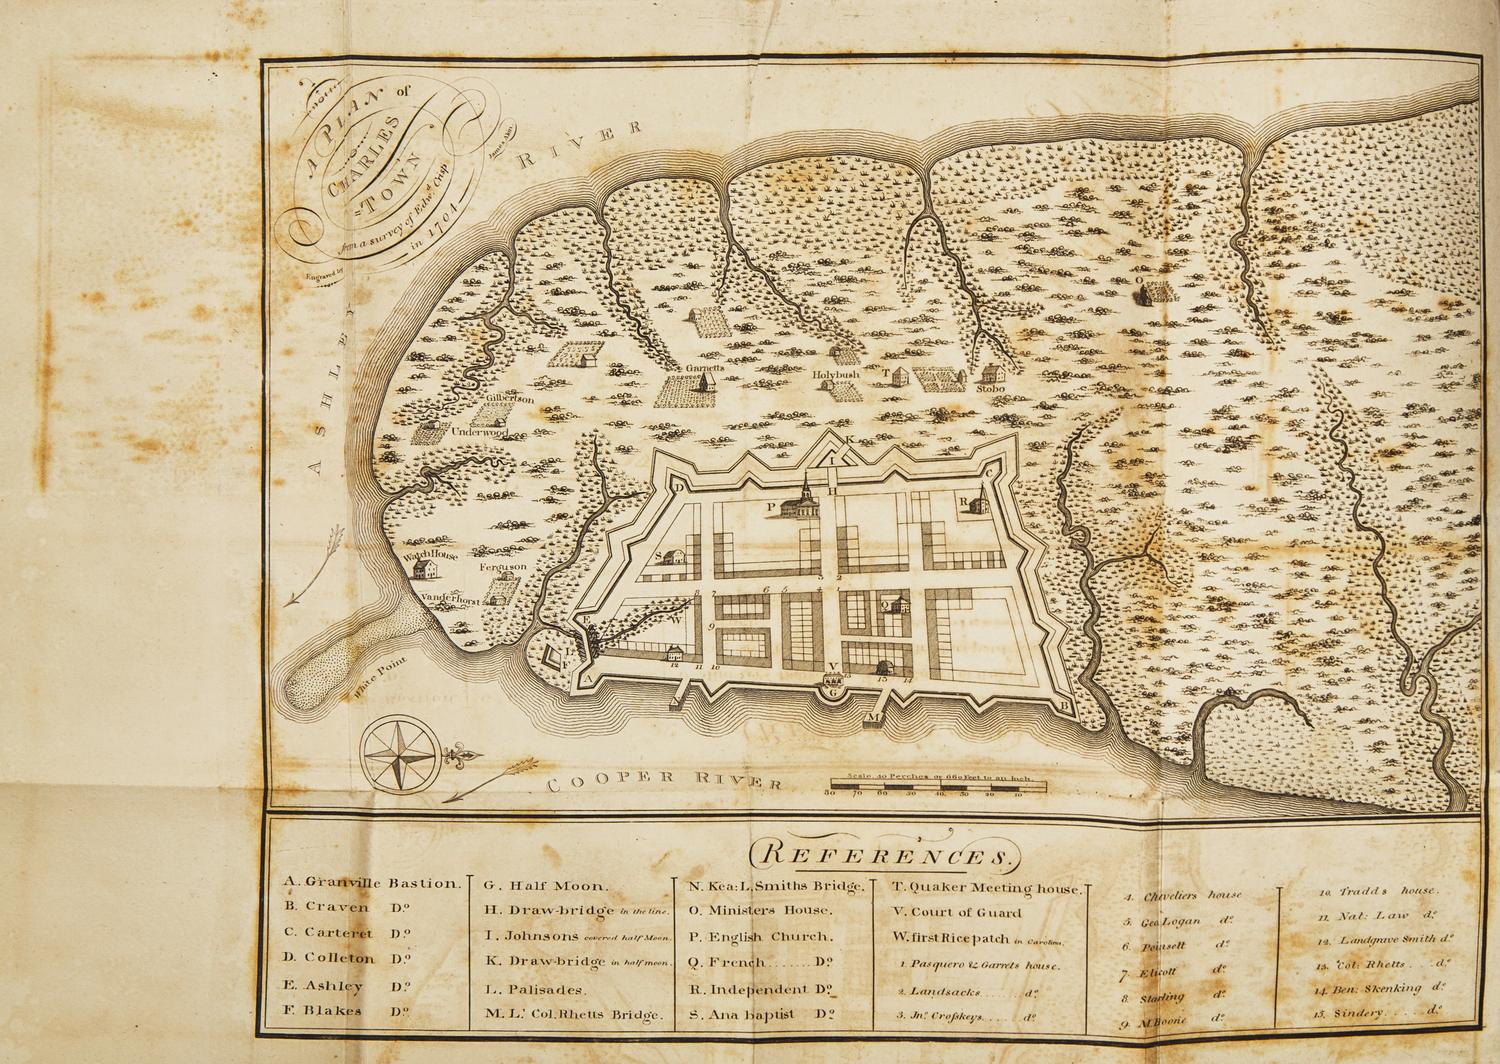 A PLAN of
CHARLES
=TOWN
from a survey of Edwd. Crisp
in 1704
Engraved by
James Akin
RIVER
ASHLEY
Garnetts
Holybush
T
Stobo
O
Gilbertson
Underwood
K
I
D
C
H
P
R
Watch House
S
Ferguson
Vanderhorst
3 2
8 7 6 5 4 1
Q
E
W
9
L
F
12 11 10
V
15
13 14
A
G
B
N
M
White Point
COOPER RIVER
Scale, 40 Perches or 660 Feet to an Inch.
80 70 60 50 40 30 20 10
REFERENCES.
A. Granville Bastion.
B. Craven Do.
C. Carteret Do.
D. Colleton Do.
E. Ashley Do.
F. Blakes Do.
G. Half Moon.
H. Draw-bridge in the line.
I. Johnsons covered half Moon.
K. Draw-bridge in half moon.
L. Palisades.
M. Lt. Col. Rhetts Bridge.
N. Kea: L. Smiths Bridge.
O. Ministers House.
P. English Church.
Q. French........Do.
R. Independent Do.
S. Ana baptist Do.
T. Quaker Meeting house.
V. Court of Guard
W. first Rice patch in Carolina.
1. Pasquero & Garrets house.
2. Landsacks......do.
3. Jno. Crosskeys.....do.
4. Cheveliers house
5. Geo Logan do.
6. Poinsett do.
7. Elicott do.
8. Starling do.
9. M. Boone do.
10. Tradds house.
11. Nat: Law do.
12. Landgrave Smith do.
13. Col: Rhetts . . do.
14. Ben: Skenking do.
15. Sindery.....do.